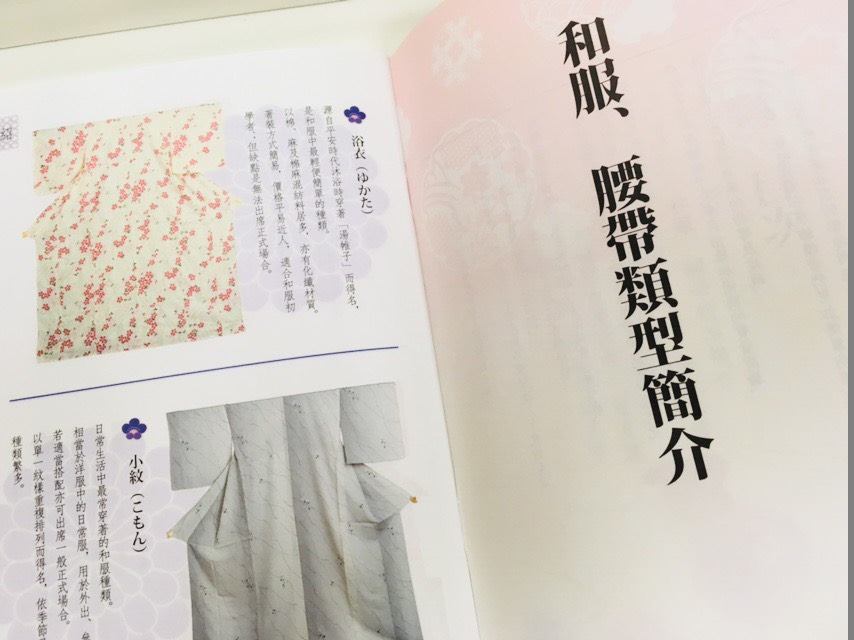 和服、腰帶類型簡介
浴衣（ゆかた）
源自平安時代沐浴時穿著「湯帷子」而得名，
是和服中最輕便簡單的種類。
以棉、麻及棉麻混紡料居多，亦有化纖材質。
著裝方式簡易、價格平易近人，適合和服初
學者；但缺點是無法出席正式場合。
小紋（こもん）
日常生活中最常穿著的和服種類。
相當於洋服中的日常服，用於外出、
若適當搭配亦可出席一般正式場合。
以單一紋樣重複排列而得名，依季節
種類繁多。
紹